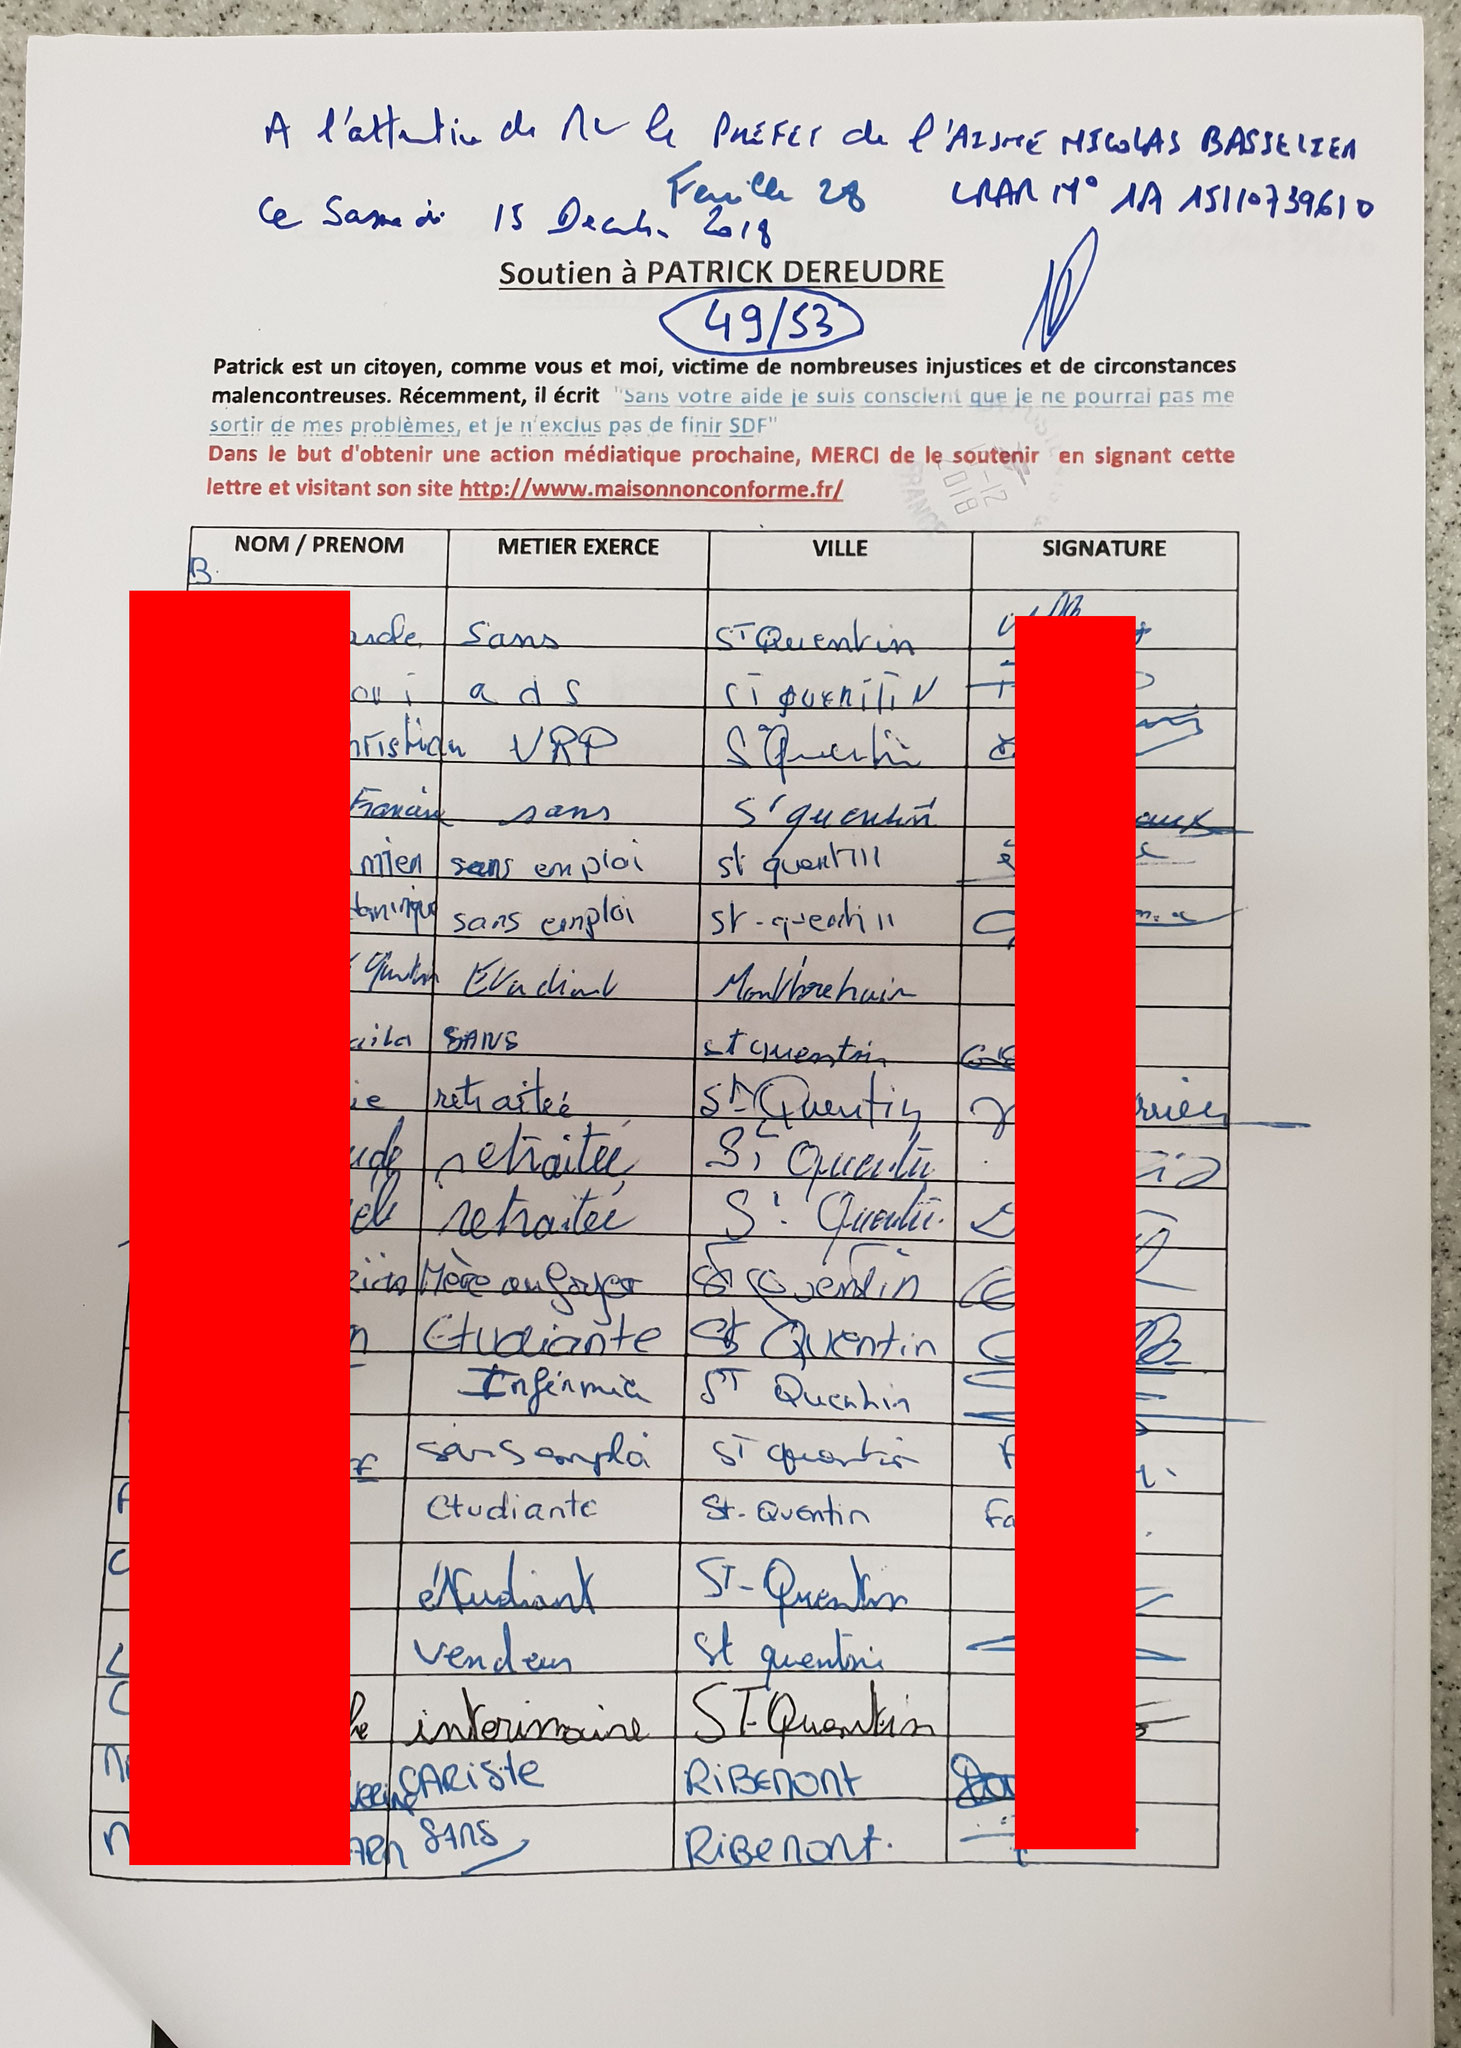 A l'attention de Mr le PREFET de l'AISNE NICOLAS BASSELIER
Feuille 28 LRAR N° 1A 15110739610
Ce Samedi 15 Decembre 2018
Soutien à PATRICK DEREUDRE
49/53
Patrick est un citoyen, comme vous et moi, victime de nombreuses injustices et de circonstances
malencontreuses. Récemment, il écrit "Sans votre aide je suis conscient que je ne pourrai pas me
sortir de mes problèmes, et je n'exclus pas de finir SDF"
Dans le but d'obtenir une action médiatique prochaine, MERCI de le soutenir en signant cette
lettre et visitant son site http://www.maisonnonconforme.fr/
NOM / PRENOM METIER EXERCE VILLE SIGNATURE
B.
sans ST Quentin
a d s ST QUENTIN
hristian VRP St Quentin
Francine sans St quentin
mien sans emploi st quentin
dominique sans emploi st-quentin
Quentin Etudiant Montbrehain
SANS st quentin
ie retraiteé St Quentin
ude retraiteé St Quentin
retraiteé St. Quentin
Mère au foyer St Quentin
n Etudiante St Quentin
Infirmier ST Quentin
sans emploi ST quentin
Etudiante St-Quentin Fa
étudiant ST-Quentin
vendeur st quentin
he interimaire ST-Quentin
CARISTE RIBEMONT
SANS RIBEMONT.